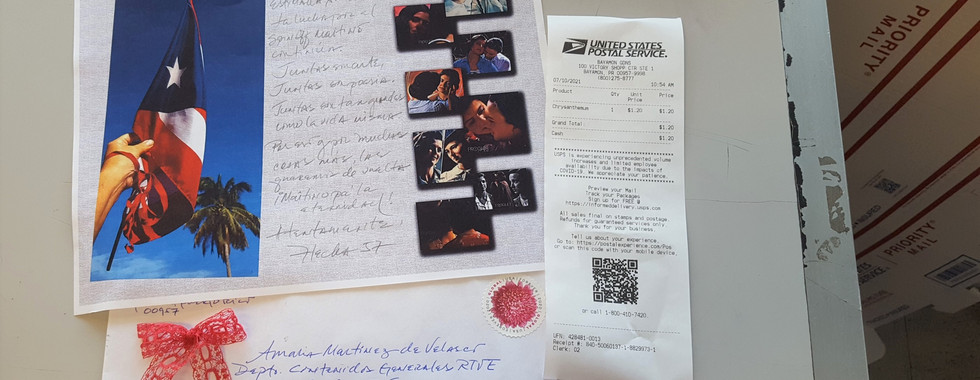 ta lucha por el
Juntas
Juntas en poesía.
como la vida misma.
Por eso y por muchas
cosas más, las
queremos de vuelta
Atentamente
00957
Amalia Martínez de Velasco
Depto. Contenidos Generales RTVE
UNITED STATES
POSTAL SERVICE.
BAYAMON GDNS
100 VICTORY SHOPP CTR STE 1
BAYAMON, PR 00957-9998
(800)275-8777
07/10/2021 10:54 AM
Product Qty Unit Price
Price
Chrysanthemum 1 $1.20 $1.20
Grand Total: $1.20
Cash $1.20
USPS is experiencing unprecedented volume
increases and limited employee
availability due to the impacts of
COVID-19. We appreciate your patience.
Preview your Mail
Track your Packages
Sign up for FREE @
https://informeddelivery.usps.com
All sales final on stamps and postage.
Refunds for guaranteed services only.
Thank you for your business.
Tell us about your experience.
Go to: https://postalexperience.com/Pos
or scan this code with your mobile device,
or call 1-800-410-7420.
UFN: 428481-0013
Receipt #: 840-50060197-1-8829973-1
Clerk: 02
PRIORITY
MAIL
PRIORITY
MAIL